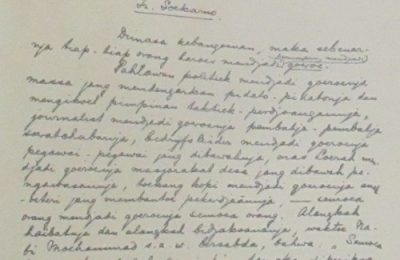 Ir. Soekarno.
Dimasa kebangoenan, maka sebenar-
nja tiap-tiap orang haroes mendjadi goeroe.
Pahlawan politiek mendjadi goeroenja
massa jang mendengarkan pidato-pidatonja dan
mengikoet pimpinan taktiek-perdjoangannja,
journalist mendjadi goeroenja pembatja-pembatja
soeratchabarnja, bedryfsleider mendjadi goeroenja
pegawai-pegawai jang dibawahnja, loerah men-
djadi goeroenja masjarakat desa jang dibawah pe-
ngawasannja, toekang kopi mendjadi goeroenja
isteri jang membantoe pekerdjaannja, — semoea
orang mendjadi goeroenja semoea orang. Alangkah
haibatnja dan alangkah bidjaksananja, waktoe Na-
bi Mochammad s.a.w. bersabda, bahwa, „Semoea